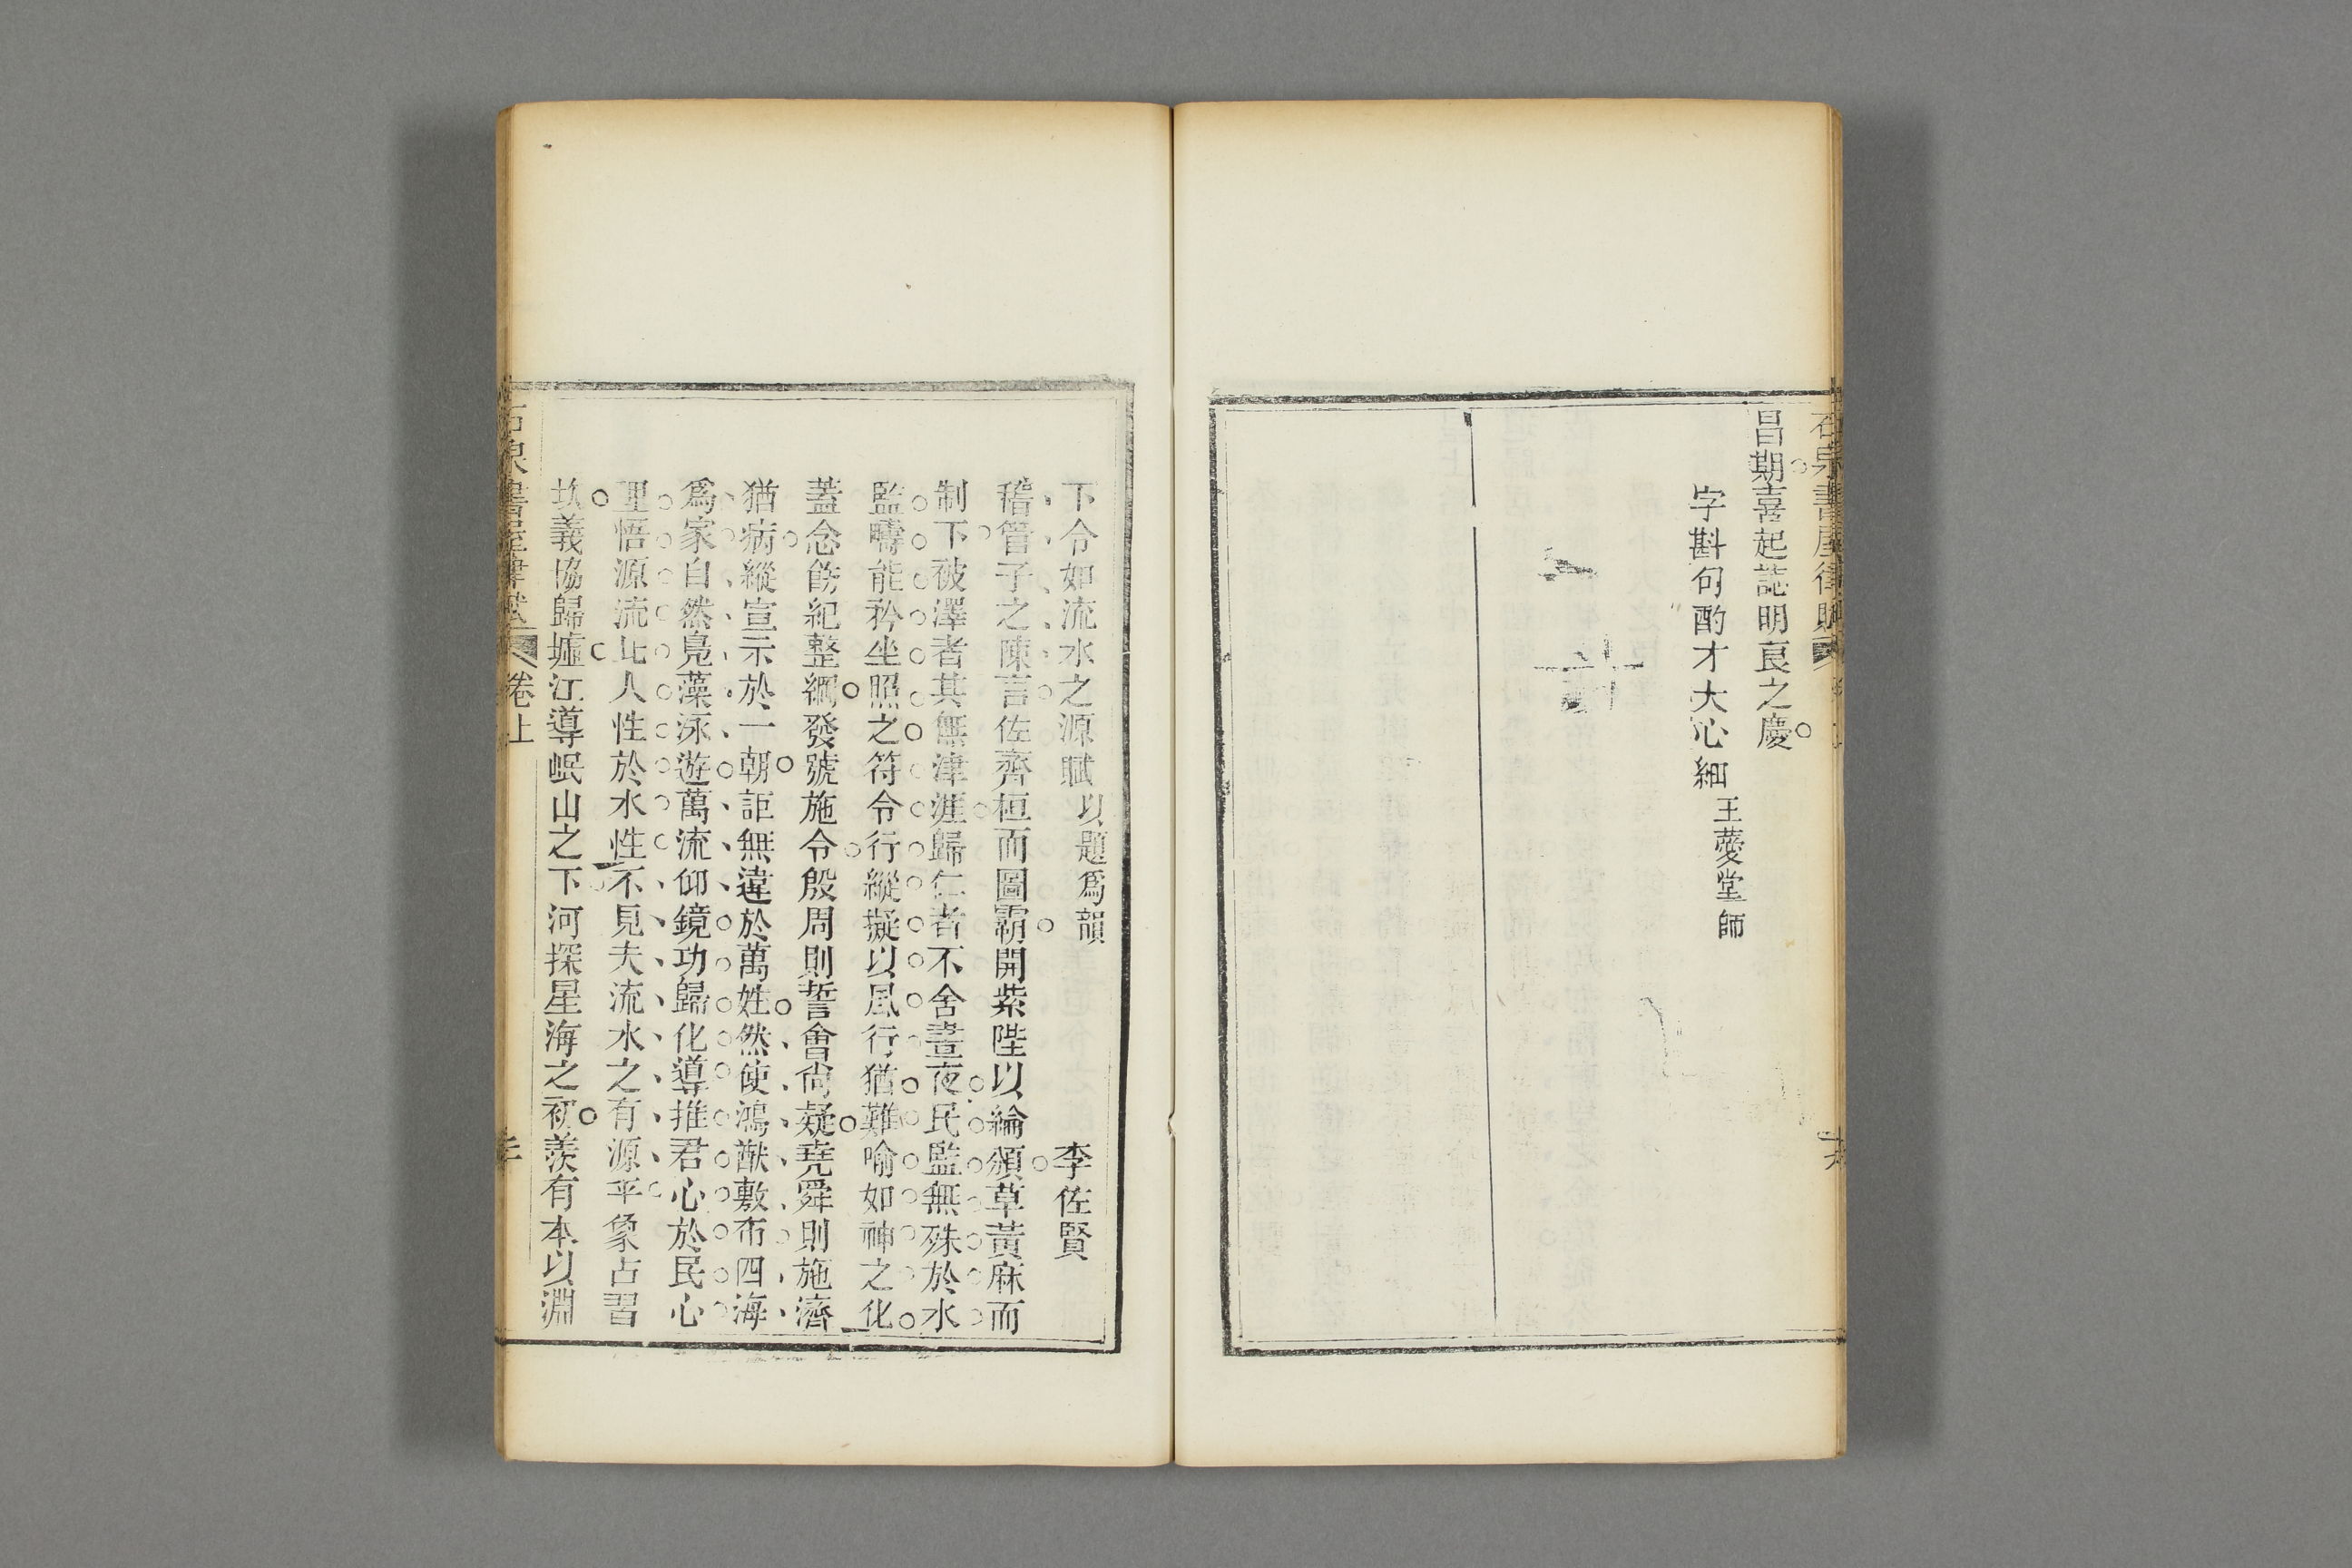 石泉書屋律賦
昌期喜起誌明良之慶
字斟句酌才大心細 王藆堂師
下令如流水之源賦 以題爲韻 李佐賢
稽管子之陳言佐齊桓而圖霸開紫陛以綸頒草黃麻而
制下被澤者其無津涯歸仁者不舍晝夜民監無殊於水
監疇能矜坐照之符令行縱擬以風行猶難喻如神之化
蓋念飭紀整綱發號施令殷周則誓會尙疑堯舜則施濟
猶病縱宣示於一朝詎無違於萬姓然使鴻猷敷布四海
爲家自然鳧藻泳遊萬流仰鏡功歸化導推君心於民心
理悟源流比人性於水性不見夫流水之有源乎象占習
坎義協歸墟江導岷山之下河探星海之初羨有本以淵
石泉書屋律賦 卷上